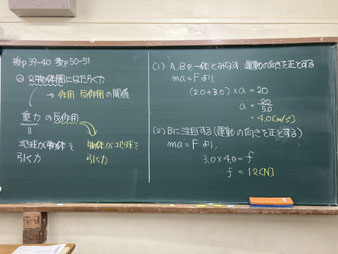 p39-40 p50-51
2物体間にはたらく力
→ 作用・反作用の関係
重力の反作用
||
地球が物体を
引く力
物体が地球を
引く力
(1) A,Bを一体とみなす 運動の向きを正とする
ma=Fより、
(2.0+3.0)×a=20
a=20/5.0
=4.0[m/s²]
(2) Bに注目する(運動の向きを正とする)
ma=Fより、
3.0×4.0=f
f=12[N]